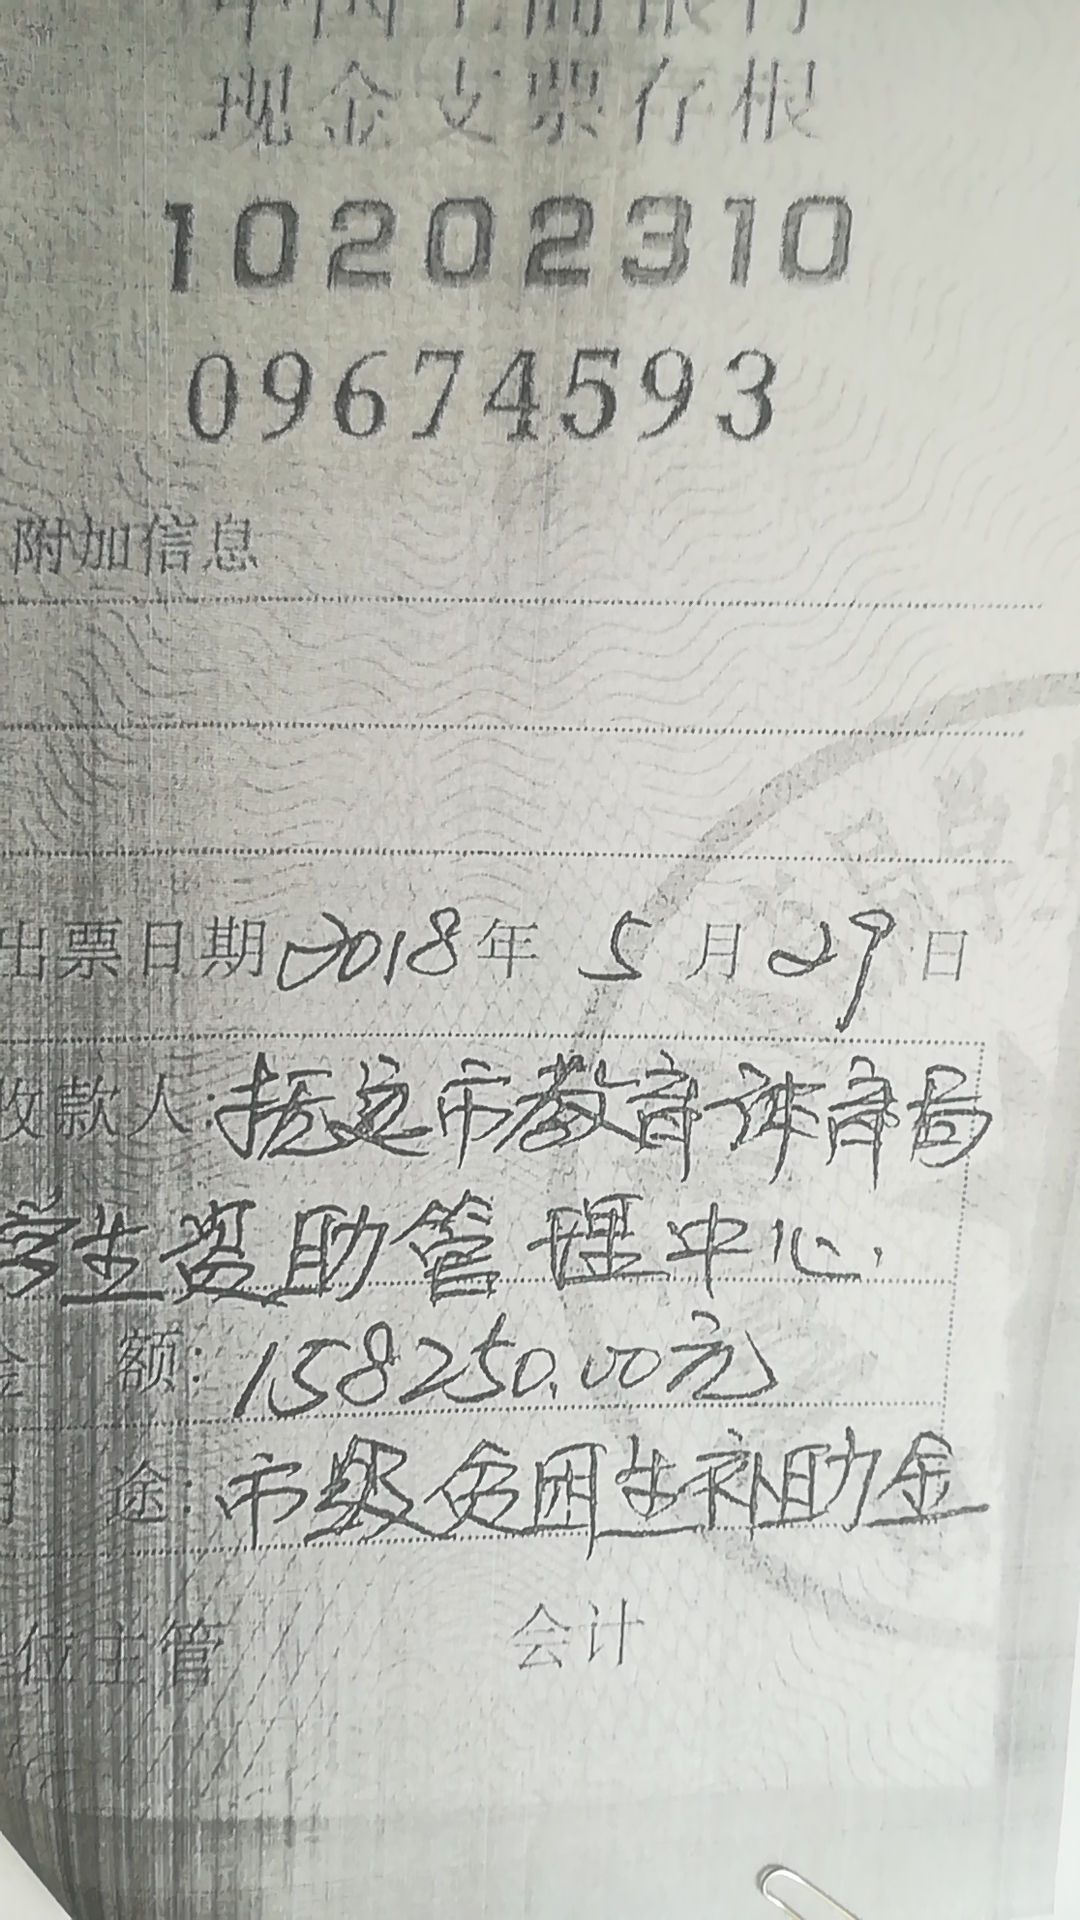 中国工商银行
现金支票存根
10202310
09674593
附加信息
出票日期2018年5月29日
收款人:抚远市教育体育局
学生资助管理中心.
金额:158250.00元
用途:市级贫困生补助金
单位主管 会计